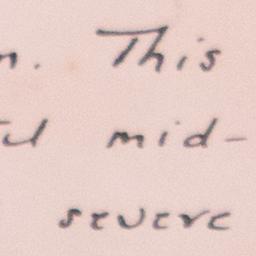 This
mid-
severe